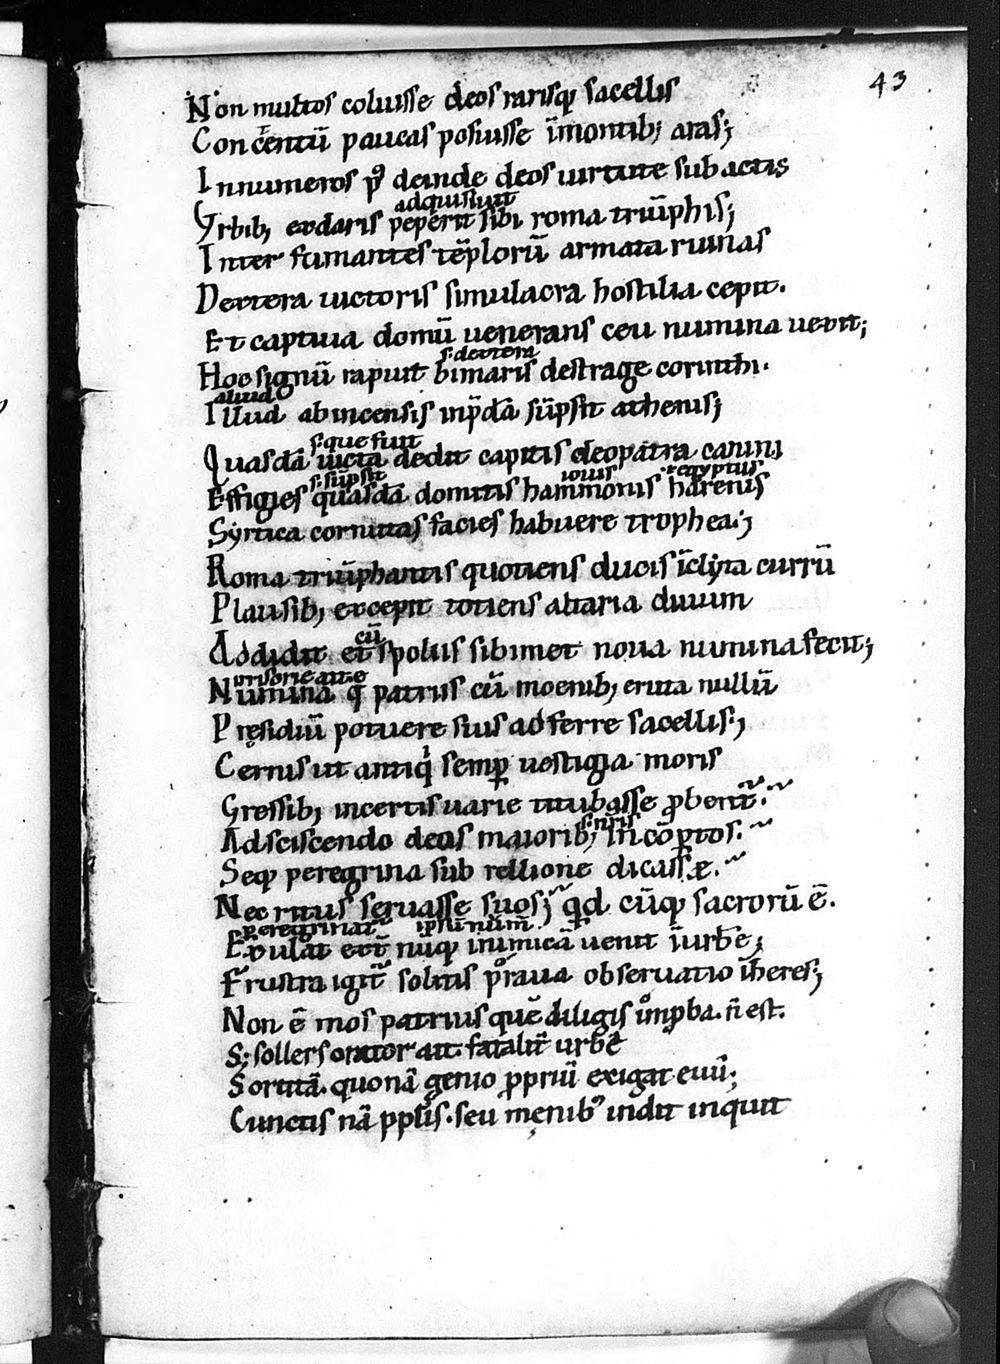 43
Non multos coluisse deos rarisq; sacellis
Contentū paucas posuisse īmontib; aras;
Innumeros p⁹ deinde deos uirtute subactis
adquisiuit
Vrbib; exclaris peperit sibi roma triūphis;
Inter fumantes tēplorū armata ruinas
Dextera uictoris simulacra hostilia cepit.
Et captiua domū uenerans ceu numina uexit;
s. dextera
Hoc signū rapuit bimaris destrage corinthi.
aliud
Illud abincensis inp̄dā sūpsit athenis;
s. que fuit
Quasdā uicta dedit capitis cleopatra canini
s. sūpsit iouis egyptus
Effigies quasdā domitis hammonis harenis
Syrtica cornutas facies habuere trophea;
Roma triūphantis quotiens ducis īclyta currū
Plausib; excepit totiens altaria diuum
cū
Addidit et spoliis sibimet noua numina fecit;
Numina q̄ patriis cū moenib; eruta nullū
Pręsidiū potuere suis adferre sacellis;
Cernis ut antiqi semp uestigia moris
Gressib; incertis uarie titubasse pbent̄.
s. nris
Adsciscendo deos maiorib; incōptos.
Seq; peregrina sub rellione dicasse.
Nec ritus seruasse suos; qd cūq; sacrorū ē.
peregrinat̄ ipsū num̄
Exulat ext̄ nūq; inimicā uenit īurbē;
Frustra igit̄ solitis praua obseruatio īheres;
Non ē mos patrius quē diligis īmpba. n̄ est.
S; sollers orator ait. fatalit̄ urbē
Sortitā. quonā genio ppriū exigat euū;
Cunctis nā pplis. seu męnib⁹ indit inquit